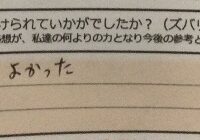 けられていかがでしたか？（ズバリ
想が、私達の何よりの力となり今後の参考と
よかった